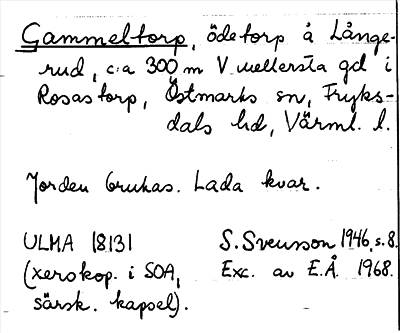 Gammeltorp, ödetorp å Långe-
rud, c:a 300 m V mellersta gd i
Rosastorp, Östmarks sn, Fryks-
dals hd, Värml. l.
Jorden brukas. Lada kvar.
ULMA 18131 S. Svensson 1946, s. 8.
(xerokop. i SOA, Exc. av E.Å. 1968.
särsk. kapsel).